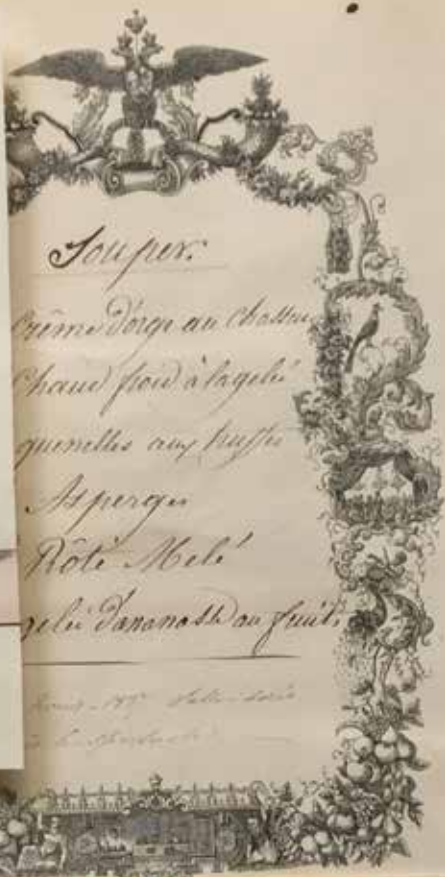 Souper.
Crême d'orge au Chasseur
Chaud froid à la gelé
quenelles aux truffes
Asperges
Rôti Melé
gelée d'ananasse au fruits